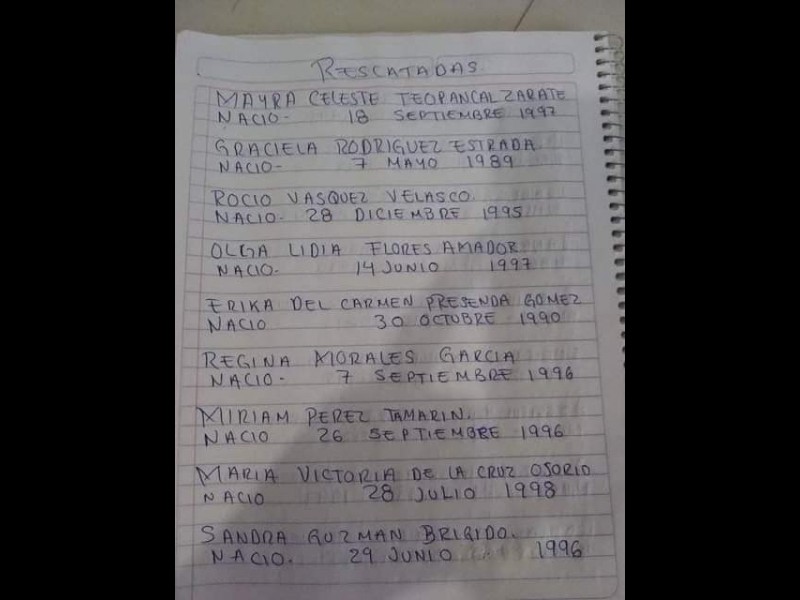 RESCATADAS
MAYRA CELESTE TEOPANCAL ZARATE
NACIO- 18 SEPTIEMBRE 1997
GRACIELA RODRIGUEZ ESTRADA
NACIO- 7 MAYO 1989
ROCIO VASQUEZ VELASCO.
NACIO- 28 DICIEMBRE 1995
OLGA LIDIA FLORES AMADOR
NACIO. 14 JUNIO 1997
ERIKA DEL CARMEN PRESENDA GOMEZ
NACIO 30 OCTUBRE 1990
REGINA MORALES GARCIA
NACIO- 7 SEPTIEMBRE 1996
MIRIAM PEREZ TAMARIN.
NACIO 26 SEPTIEMBRE 1996
MARIA VICTORIA DE LA CRUZ OSORIO
NACIO 28 JULIO 1998
SANDRA GUZMAN BRIGIDO.
NACIO. 29 JUNIO 1996